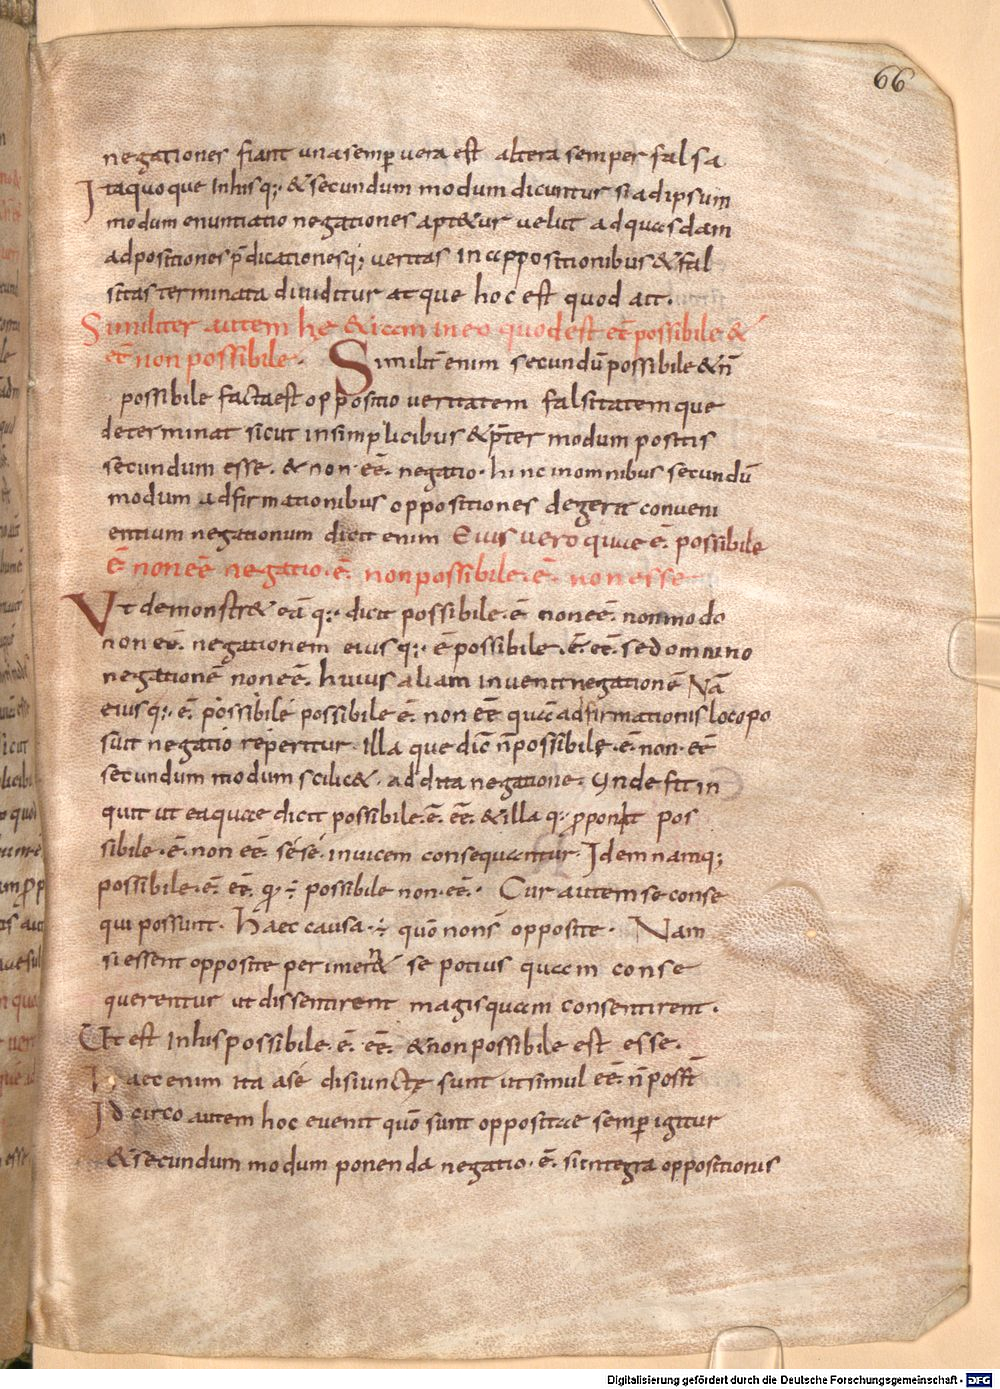 66
negationes fiant una semp̄ vera est altera semper falsa
Itaquoque in his q; & secundum modum dicuntur si ad ipsum
modum enuntiatio negationes apt&ur velut ad quasdam
adpositiones p̄dicationesq; veritas in appositionibus & fal
sitas terminata diuiditur atque hoc est quod ait.
Similiter autem hę & iam in eo quod est eē possibile &
eē non possibile. Similit̄ enim secundū possibile & ñ
possibile facta est oppositio ueritatem falsitatemque
determinat sicut in simplicibus & p̄ter modum positis
secundum esse. & non eē. negatio. hinc in omnibus secundū
modum adfirmationibus oppositiones degerit conveni
entium negationum dicit enim Eius vero quae ē. possibile
ē non eē negatio. ē. non possibile. ē. non esse
Vt demonstr& eā q; dicit possibile. ē non eē. non modo
non eē. negationem eius q; ē possibile. ē. eē. sed omnino
negationē non eē. huius aliam inuenit negationē Nā
eius q; ē. possibile possibile ē. non eē quā adfirmationis loco po
suit negatio reperitur. Illa que dic̄ ñ possibile. ē. non. eē
secundum modum scilic&. addita negatione. Vnde fit in
quit ut ea quae dicit possibile. ē. eē. & illa q; p̄ponit pos
sibile. ē. non eē. sésé. inuicem consequantur. Idem namq;
possibile. ē. eē. q; ÷ possibile non. eē. Cur autem se conse
qui possunt. Haec causa. ÷ quō non s̄ opposite. Nam
si essent opposite perimer& se potius quam conse
querentur ut dissentirent magis quam consentirent.
Ut est in his possibile. ē. eē. & non possibile est esse.
Haec enim ita a sé disiunctę sunt ut simul eē. ñ poss̄t
Idcirco autem hoc evenit quō sunt oppositae semp̄ igitur
& secundum modum ponenda negatio. ē. si integra oppositionis
Digitalisierung gefördert durch die Deutsche Forschungsgemeinschaft - DFG